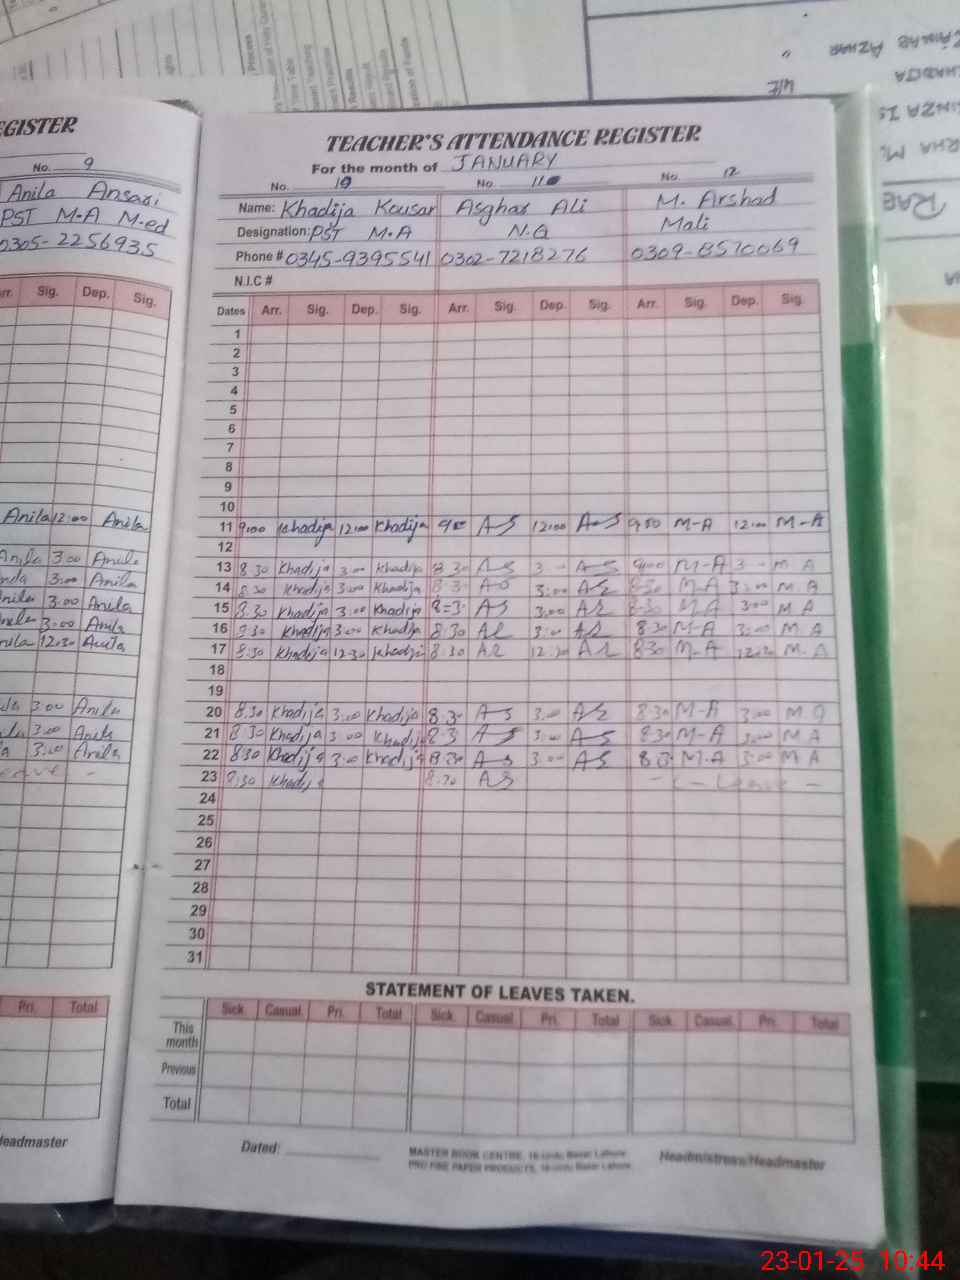 EGISTER
No. 9
Anila Ansari
PST M-A M-ed
0305-2256935
Arr. Sig. Dep. Sig.
Anila 12:00 Anila
Anila 3:00 Anila
3:00 Anila
3:00 Anila
3:00 Anila
12:30 Anila
3:00 Anila
3:00 Anila
3:00 Anila
Pri. Total
Headmaster
TEACHER'S ATTENDANCE REGISTER
For the month of JANUARY
No. 10 No. 11 No. 12
Name: Khadija Kousar Asghar Ali M. Arshad
Designation: PST M.A N.Q Mali
Phone # 0345-9395541 0302-7218276 0309-8570069
N.I.C #
Dates Arr. Sig. Dep. Sig. Arr. Sig. Dep. Sig. Arr. Sig. Dep. Sig.
1
2
3
4
5
6
7
8
9
10
11 9:00 Khadija 12:00 Khadija 9:00 AS 12:00 AS 9:00 M-A 12:00 M-A
12
13 8:30 Khadija 3:00 Khadija 8:30 AS 3:00 AS 9:00 M-A 3:00 M A
14 8:30 Khadija 3:00 Khadija 8:30 AS 3:00 AS 8:30 M-A 3:00 M.A
15 8:30 Khadija 3:00 Khadija 8:30 AS 3:00 AS 8:30 M-A 3:00 M A
16 8:30 Khadija 3:00 Khadija 8:30 AS 3:00 AS 8:30 M-A 3:00 M.A
17 8:30 Khadija 12:30 Khadija 8:30 AS 12:30 AS 8:30 M-A 12:30 M.A
18
19
20 8:30 Khadija 3:00 Khadija 8:30 AS 3:00 AS 8:30 M-A 3:00 M.A
21 8:30 Khadija 3:00 Khadija 8:30 AS 3:00 AS 8:30 M-A 3:00 M.A
22 8:30 Khadija 3:00 Khadija 8:30 AS 3:00 AS 8:30 M.A 3:00 M A
23 8:30 Khadija 8:30 AS - Leave -
24
25
26
27
28
29
30
31
STATEMENT OF LEAVES TAKEN.
Sick Casual Pri. Total Sick Casual Pri. Total Sick Casual Pri. Total
This month
Previous
Total
Dated:
MASTER BOOK CENTRE, 16-Urdu Bazar Lahore
PRO FINE PAPER PRODUCTS, 16-Urdu Bazar Lahore
Headmistress/Headmaster
23-01-25 10:44